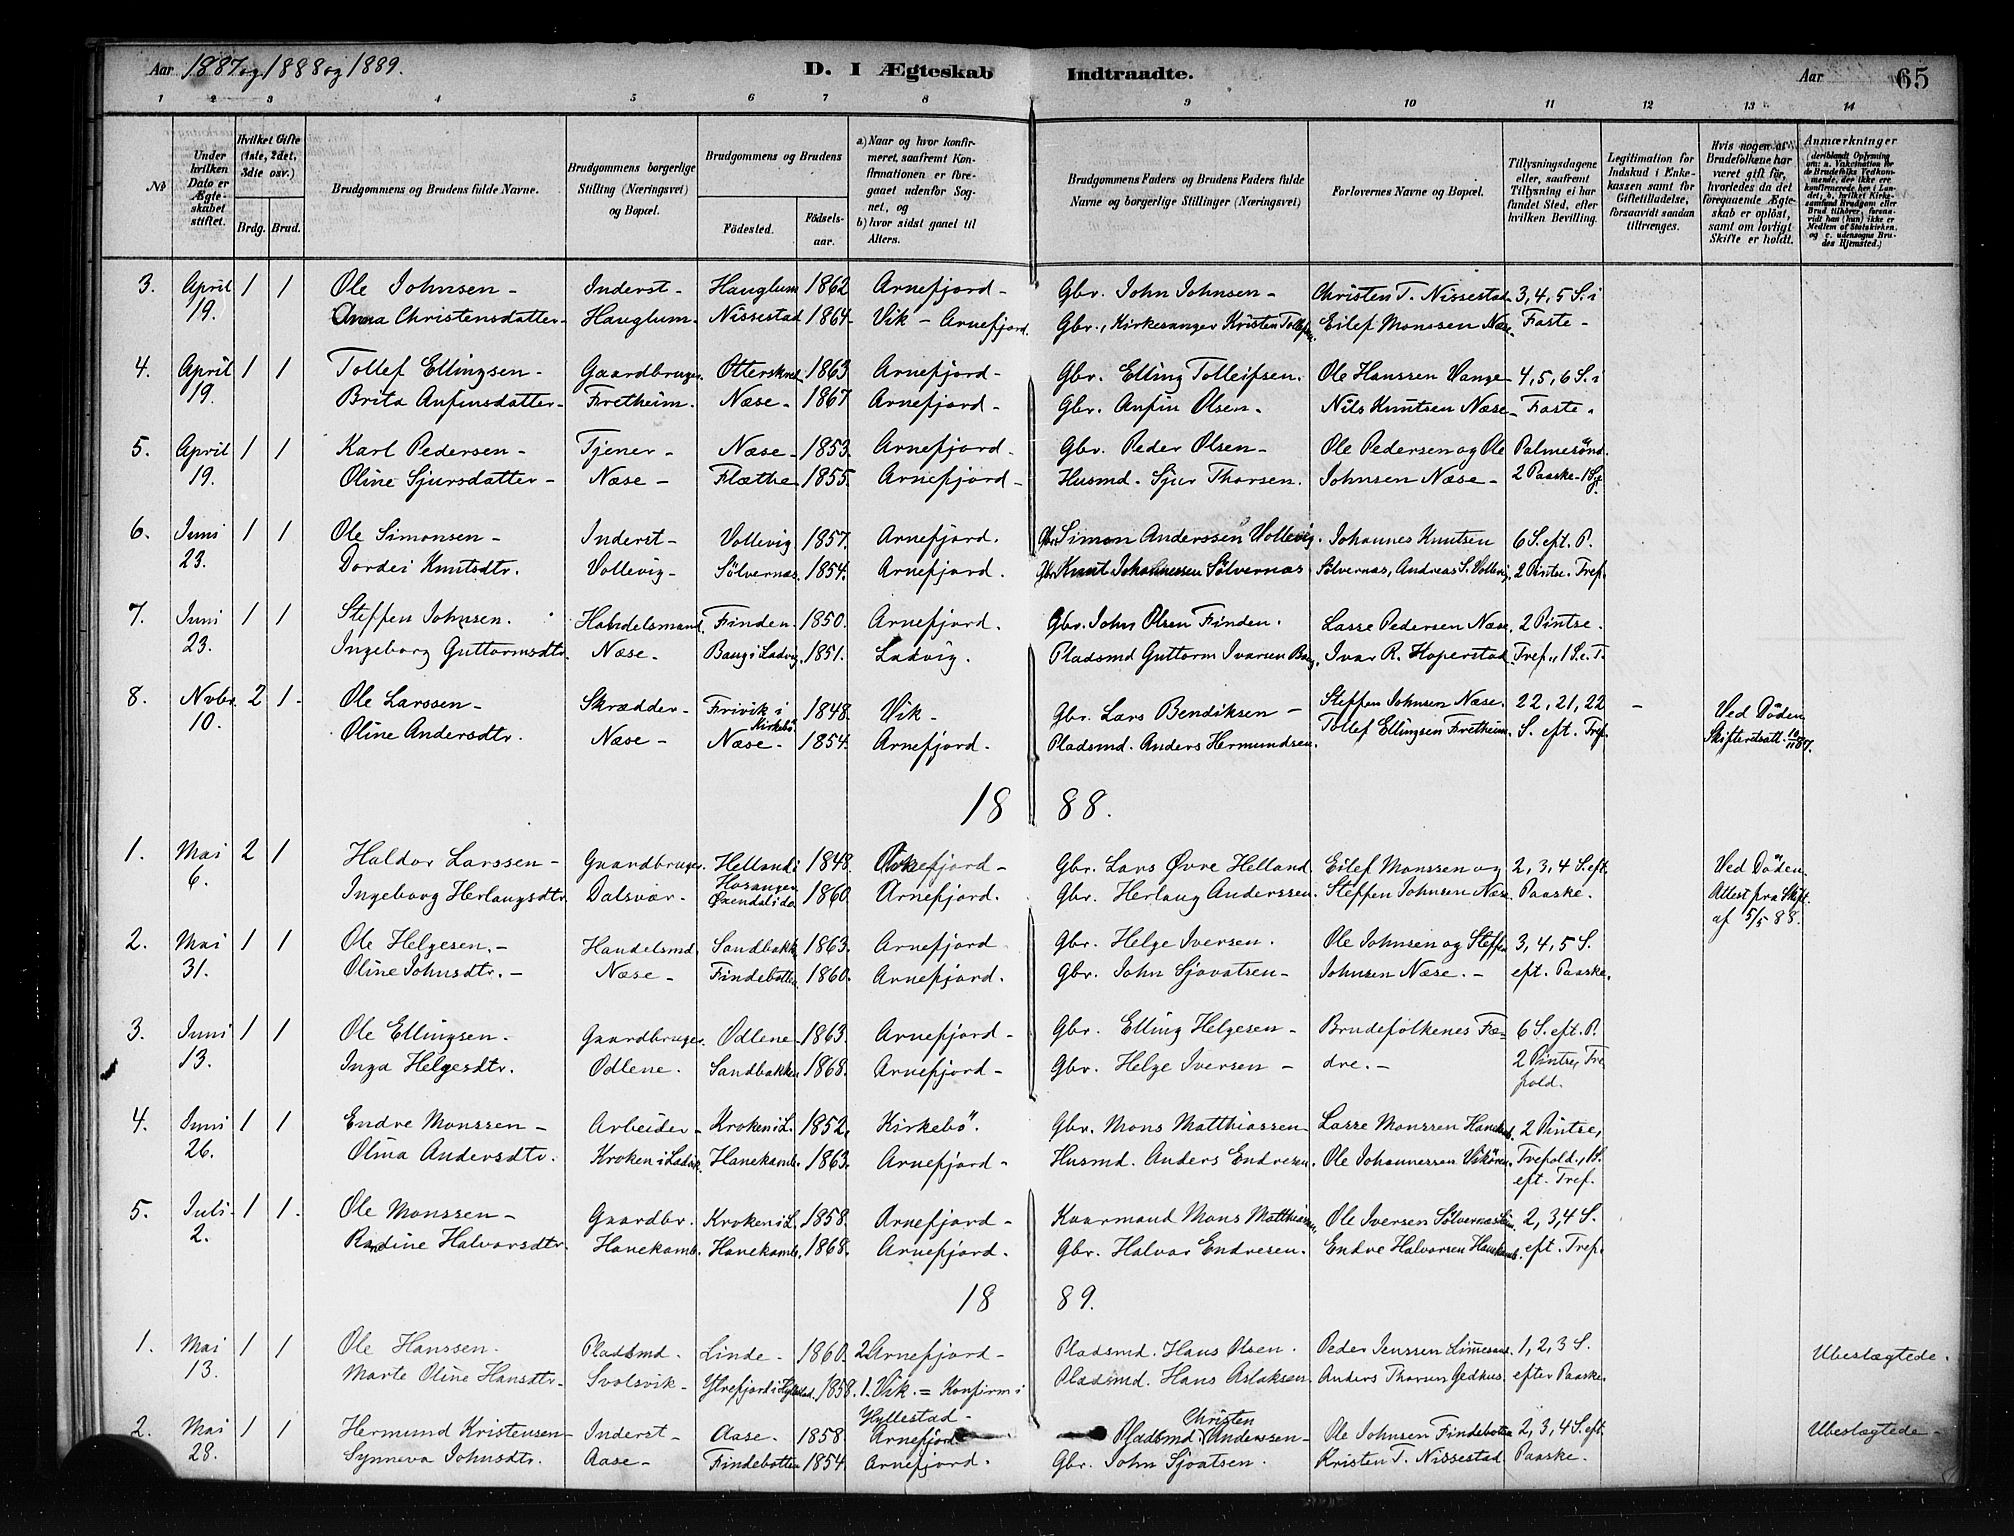 Aar 1887 og 1888 og 1889. D. I Ægteskab Indtraadte. Aar 65
1 2 3 4 5 6 7 8 9 10 11 12 13 14
No
Under hvilken Dato er Ægteskabet stiftet.
Hvilket Gifte (1ste, 2det, 3die osv.)
Brdg. Brud.
Brudgommens og Brudens fulde Navne.
Brudgommens borgerlige Stilling (Næringsvei) og Bopæl.
Brudgommens og Brudens
Fødested. Fødselsaar.
a) Naar og hvor konfirmeret, saafremt Konfirmationen er foregaaet udenfor Sognet, og
b) hvor sidst ganet til Alters.
Brudgommens Faders og Brudens Faders fulde Navne og borgerlige Stillinger (Næringsvei)
Forlovernes Navne og Bopæl.
Tillysningsdagene eller, saafremt Tillysning ei har fundet Sted, efter hvilken Bevilling.
Legitimation for Indskud i Enkekassen samt for Giftetilladelse, forsaavidt saadan tiltrænges.
Hvis nogen af Brudefolkene har været gift før, hvorledes da det foregaaende Ægteskab er opløst, samt om lovligt Skifte er holdt.
Anmærkninger (deriblandt Oplysning om: a. Vakcination for de Brudefolks Vedkommende, der ikke ere konfirmerede her i Landet, b. hvilket Kirkesamfund Brudgom eller Brud tilhører, forsaavidt han (hun) ikke er Medlem af Statskirken, og c. udensogns Brudes Hjemsted.)
3. April 1 1 Ole Johnsen - Inderst - Hauglum 1862 Arnefjord - Gbr. John Johnsen - Christen T. Nissestad 3, 4, 5 S. i
19. Anna Christensdatter - Hauglum - Nissestad 1864 Vik - Arnefjord. Gbr., Kirkesanger Kristen Tollefsen. Eilef Monssen Næse. Faste -
4. April 1 1 Tollef Ellingsen - Gaardbruger. 1863 Arnefjord - Gbr. Elling Tolleifsen. Ole Hanssen Vange 4, 5, 6 S. i
19. Brita Anfinsdatter - Fretheim. Næse - 1867 Arnefjord - Gbr. Anfin Olsen - Nils Knutsen Næse - Faste.
5. April 1 1 Karl Pedersen - Tjener - Næse - 1853. Arnefjord. Gbr. Peder Olsen - Ole Pedersen og Ole Palmesönd.
19. Oline Sjursdatter - Næse - 1855. Arnefjord - Husmd. Sjur Thorsen. Johnsen Næse - 2 Paaske - 1 S.
6. Juni 1 1 Ole Simonsen - Inderst - Vollevig 1857. Arnefjord. Gbr. Simon Anderssen Vollevig. Johannes Knutsen 6 S. eft. P.
23. Dordei Knutsdtr. Vollevig - Sölvernas. 1854. Arnefjord. Gbr. Knut Johannessen Sölvernas Sölvernas, Andreas S. Vollevig 2 Pintse, Tref.
7. Juni 1 1 Steffen Johnsen. Handelsmand. Finden. 1850. Arnefjord. Gbr. John Olsen Finden. Lasse Pedersen Næse. 2 Pintse.
23. Ingeborg Guttormsdtr. Næse - Baug i Ladvig. 1851. Ladvig. Pladsmd Guttorm Ivarsen Baug, Ivar R. Hoperstad. Tref., 1 S. e. T.
8. Nvbr. 2 1 - Ole Larssen - Skrædder - Frivik i Kirkebö 1848. Vik - Gbr. Lars Bendiksen - Steffen Johnsen Næse. 22, 21, 22 - Ved Döden
10. Oline Andersdtr. Næse - Næse - 1854. Arnefjord. Pladsmd. Anders Hermundsen. Tollef Ellingsen Fretheim. S. eft. Tref. Skifteretsatt. 10/11 87.
18 88.
1. Mai 2 1 Haldor Larssen - Gaardbruger. Helland i Hosanger 1848. Gbr. Lars Øvre Helland Eilef Monssen og 2, 3, 4 S. eft. Ved Döden
6. Ingeborg Herlaugsdtr. Dalsvær. 1860 Arnefjord. Gbr. Herlaug Anderssen. Steffen Johnsen Næse Paaske. Attest fra Skift. af 5/5 88.
2. Mai 1 1 Ole Helgesen. - Handelsmd. Sandbakk. 1863. Arnefjord Gbr. Helge Iversen. Ole Johnsen og Steffen 3, 4, 5 S.
31. Oline Johnsdtr. - Næse - Findebotten 1860. Arnefjord. Gbr. John Sjovatsen - Johnsen Næse. - eft. Paaske.
3. Juni 1 1 Ole Ellingsen. Gaardbruger. Odlene 1863. Arnefjord - Gbr. Elling Helgesen - Brudefolkenes Fæ- 6 S. eft. P.
13. Inga Helgesdtr. Odlene. Sandbakken 1868. Arnefjord - Gbr. Helge Iversen - dre. - 2 Pintse, Tre fold.
4. Juni 1 1 Endre Monssen - Arbeider - Kroken i L. 1852. Kirkebö. Gbr. Mons Matthiassen Lasse Monssen Hanekamb. 2 Pintse,
26. Olina Andersdtr. Kroken i Ladv. Hanekamb. 1863. Arnefjord - Husmd. Anders Endresen. Ole Johannessen Vikören. Trefold., 1 S. eft. Tref.
5. Juli 1 1 - Ole Monssen - Gaardbr. Kroken i L. 1858. Arnefjord - Kaarmand Mons Matthiassen Ole Iversen Sölvernas 2, 3, 4 S.
2. Randine Halvorsdtr. Hanekamb. Hanekamb. 1868. Arnefjord. Gbr. Halvor Endresen. Endre Halvorsen Hanekamb. eft. Tref.
18 89.
1. Mai 1 1 Ole Hanssen. Pladsmd. Linde - 1860. 2. Arnefjord - Pladsmd. Hans Olsen. Peder Jenssen 1, 2, 3 S. Ubeslægtede.
13. Marte Oline Hansdtr. Svolsvik - Ytrefjord i Hyllestad. 1858. 1. Vik. = Konfirm i Hyllestad - Pladsmd. Hans Aslaksen. Anders Thorsen efter Paaske
2. Mai 1 1 Hermund Kristensen - Inderst - Aase. 1858. Arnefjord Pladsmd Christen Anderssen - Ole Johnsen Findebotten 2, 3, 4 S. eft. Ubeslægtede -
28. Synneva Johnsdtr. Aase - Findebotten 1854. Arnefjord. Gbr. John Sjoatsen. Kristen T. Nissestad Paaske.